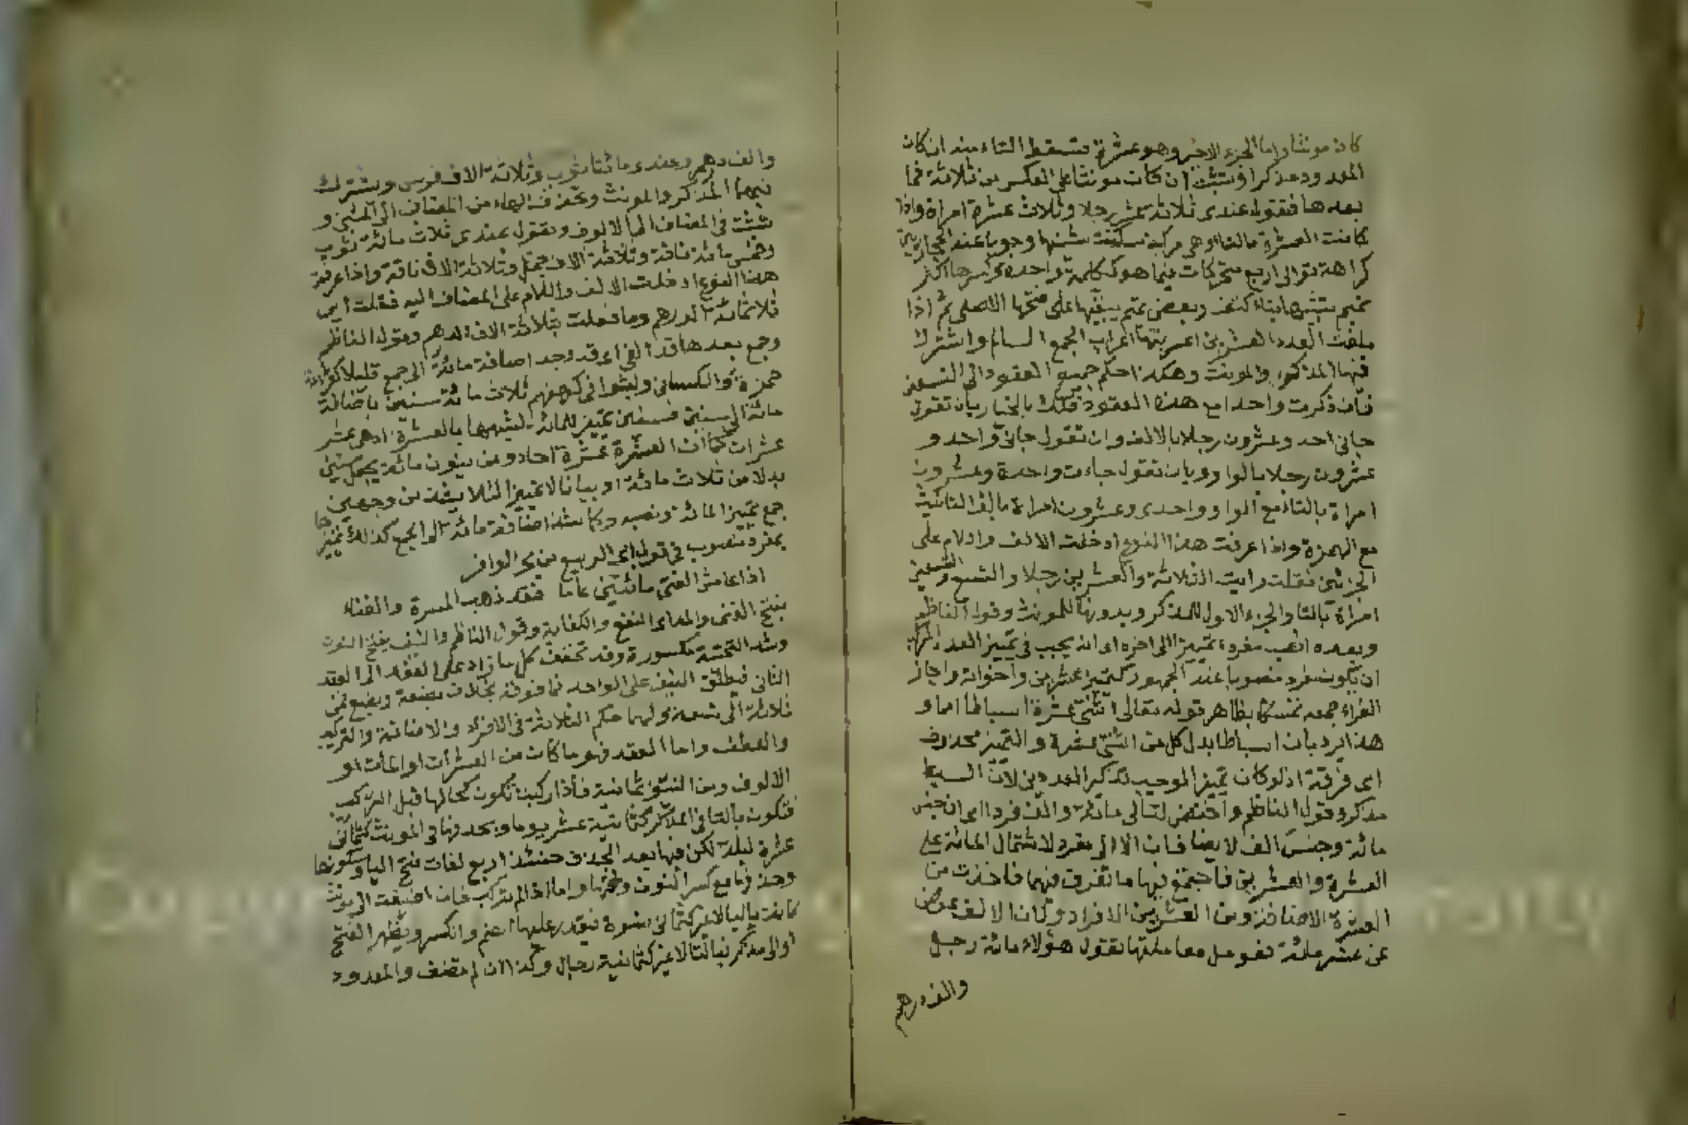 كان مونثا واما الجزء الاخير وهو عشرة فتسقط التاء منه ان كان
المعدود مذكرا وتثبت ان كان مونثا على العكس من ثلاثة فما
بعدها فتقول عندى ثلاثة عشر رجلا وثلاث عشرة امراة واذا
كانت العشرة بالتا وهى مركبة سكنت شينها وجوبا عند الحجازيين
كراهة توالى اربع متحركات فيما هو كلمة واحدة واكثر
تميم وبعض تميم يبقيها على فتحها الاصلى ثم اذا
بلغت العدد العشرين اعربتها اعراب الجمع السالم واشترك
فيها المذكر والمونث وهكذا احكم جميع العقود الى التسعين
فان ذكرت واحدا مع هذه العقود فلك بالخيار بان تقول
جانى احد وعشرون رجلا بالالف وان تقول جانى واحد و
عشرون رجلا بالواو وبان تقول جاءت واحدة وعشرون
امراة بالتا مع الواو واحدى وعشرون امراة بالف التانيث
مع الهمزة واذا عرفت هذا النوع ادخلت الالف والام على
الجزئين فقلت رايت الثلاثة والعشرين رجلا والتسع والتسعين
امراة بالتا والجزء الاول للمذكر وبدونها للمونث وقول الناظم
وبعده انصب مفردا تمييزا الى اخره اى انه يجب فى تمييز العدد المركب
ان يكون مفردا منصوبا عند الجمهور كتمييز عشرين واخواته واجاز
الفراء جمعه تمسكا بظاهر قوله تعالى اثنتى عشرة اسباطا امما و
هذا يرد بان اسباطا بدل كل من اثنتى عشرة والتمييز محذوف
اى فرقة اذ لو كان تمييزا لوجب تذكير العددين لان السبط
مذكر وقول الناظم واخفض لتالى مائة والف فردا اى ان جنس
مائة وجنس الف لا يضافان الا الى مفرد لاشتمال المائة على
العشرة والعشرين فاجتمع فيها ما تفرق فيهما فاخذت من
العشرة الاضافة ومن العشرين الافراد وكان الالف عوض
عن عشر مائة فعومل معاملتها تقول هؤلاء مائة رجل
والف درهم
والف درهم وعندى مائتا ثوب وثلاثة الاف فرس ويشترك
فيهما المذكر والمونث وتحذف الهاء من المضاف الى المئين و
تثبت فى المضاف الى الالوف وتقول عندى ثلاث مائة ثوب
وخمس مائة ناقة وثلاثة الاف جمل وثلاثة الاف ناقة واذا عرفت
هذا النوع ادخلت الالف واللام على المضاف اليه فقلت
ثلاثمائة الدرهم وما فعلت بثلاثة الاف الدرهم وقول الناظم
وجمع بعدها قد الفى اى قد وجد اضافة مائة الى جمع قليلا كقراءة
حمزة والكسائى ولبثوا فى كهفهم ثلاث مائة سنين باضافة
مائة الى سنين فسنين تمييز للمائة لشبهها بالعشرة اذ هى عشر
عشرات كما ان العشرة عشرة احاد ومن ينون مائة يجعل سنين
بدلا من ثلاث مائة او بيانا لا تمييزا لئلا يشذ من وجهين
جمع تمييز المائة ونصبه وكما شذ اضافة مائة الى الجمع كذلك تمييزها
بمفرد منصوب فى قول الربيع من بحر الوافر
اذا عاش الفتى مائتين عاما فقد ذهب المسرة والفتاء
بفتح الفتى والمد اى النفع والكفاية وقول الناظم والنيف بفتح النون
وشد التحتية مكسورة وقد تخفف كل ما زاد على العقد الى العقد
الثانى فيطلق النيف على الواحد فما فوقه بخلاف بضعة وبضع فمن
ثلاثة الى تسعة ولهما حكم الثلاثة فى الافراد والاضافة والتركيب
والعطف واما العقد فهو ما كان من العشرات او المأت او
الالوف ومن النيف ثمانية فاذا ركبت تكون كحالها قبل التركيب
فتكون بالتا فى المذكر كثمانية عشر يوما ويحذفها فى المونث كثمانى
عشرة ليلة لكن فيها بعد الحذف حينئذ اربع لغات فتح اليا وسكونها
وحذفها مع كسر النون وفتحها واما اذا لم تركب فان اضيفت الى مونث
كانت باليا لا غير كثمانى نسوة فيقدر عليها الضم والكسر ويظهر الفتح
او الى مذكر فبالتا لا غير كثمانية رجال وكذا ان لم تضف والمعدود